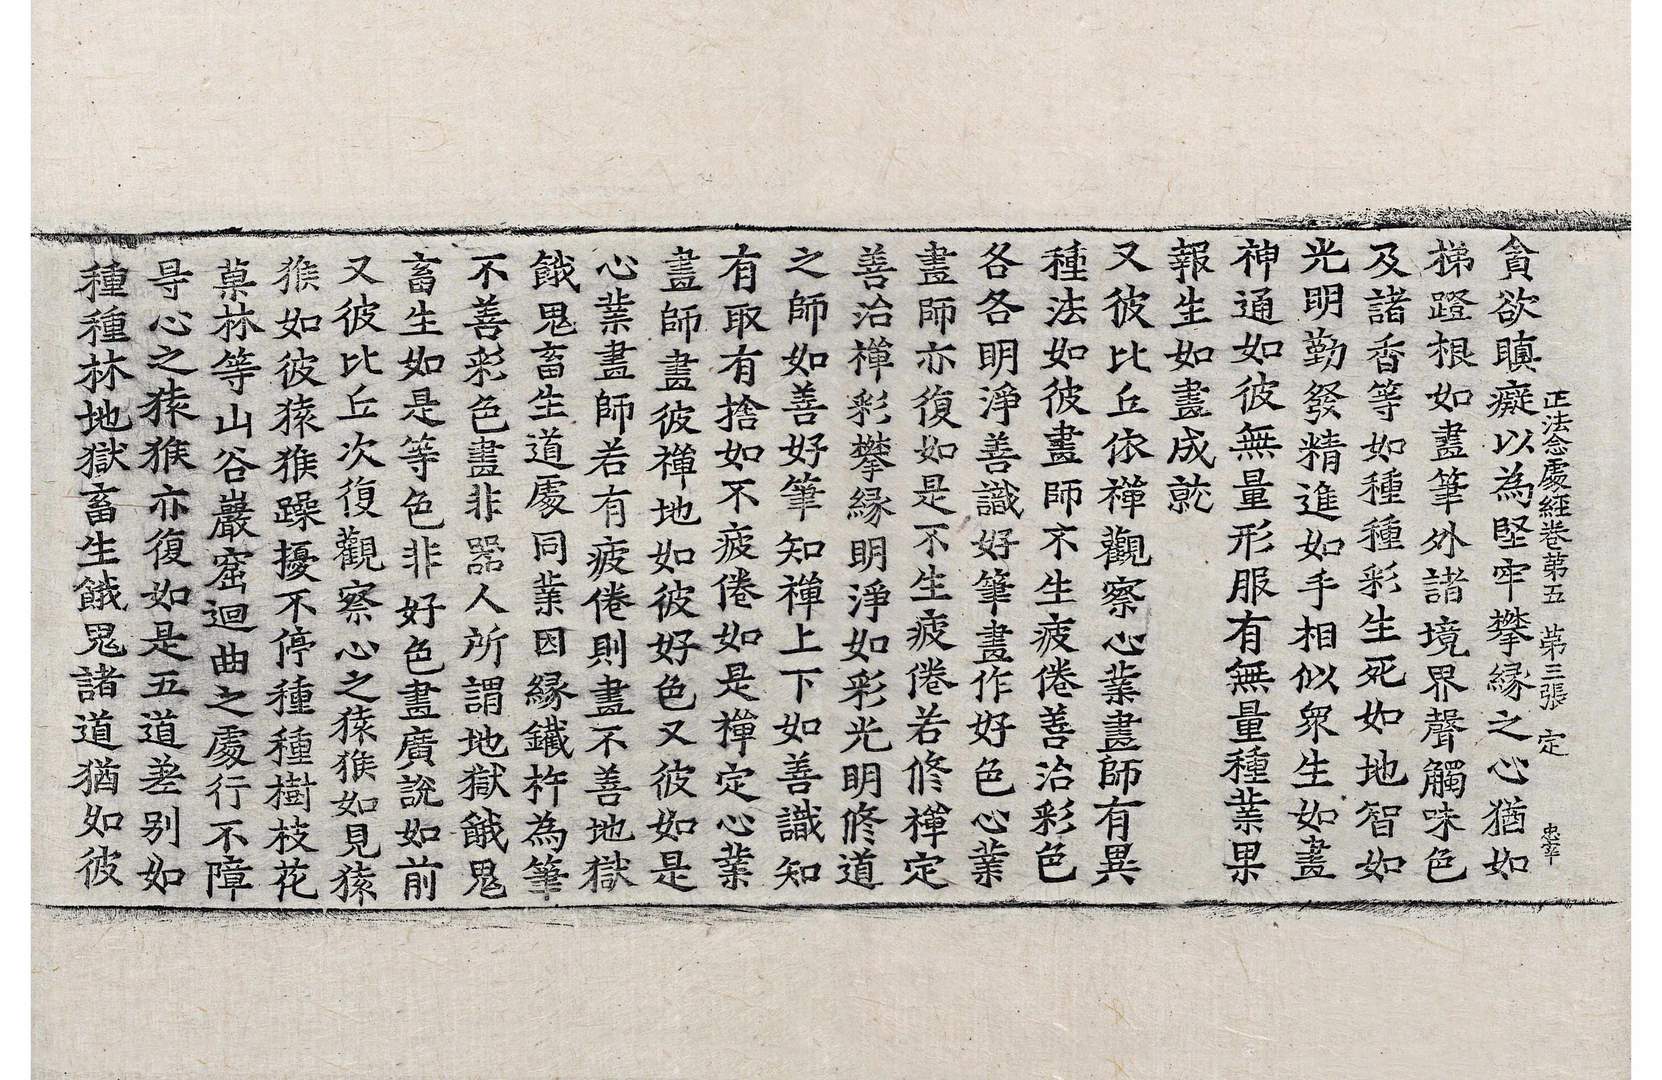 正法念處經卷第五　第三張　定　忠幸
貪欲瞋癡以為堅牢攀緣之心猶如
梯蹬根如畫筆外諸境界聲觸味色
及諸香等如種種彩生死如地智如
光明勤發精進如手相似衆生如畫
神通如彼無量形服有無量種業果
報生如畫成就
又彼比丘依禪觀察心業畫師有異
種法如彼畫師不生疲倦善治彩色
各各明淨善識好筆畫作好色心業
畫師亦復如是不生疲倦若修禪定
善治禪彩攀緣明淨如彩光明修道
之師如善好筆知禪上下如善識知
有取有捨如不疲倦如是禪定心業
畫師畫彼禪地如彼好色又彼如是
心業畫師若有疲倦則畫不善地獄
餓鬼畜生道處同業因緣鐵杵為筆
不善彩色畫非器人所謂地獄餓鬼
畜生如是等色非好色畫廣說如前
又彼比丘次復觀察心之猿猴如見猿
猴如彼猿猴躁擾不停種種樹枝花
菓林等山谷巖窟迴曲之處行不障
㝵心之猿猴亦復如是五道差別如
種種林地獄畜生餓鬼諸道猶如彼